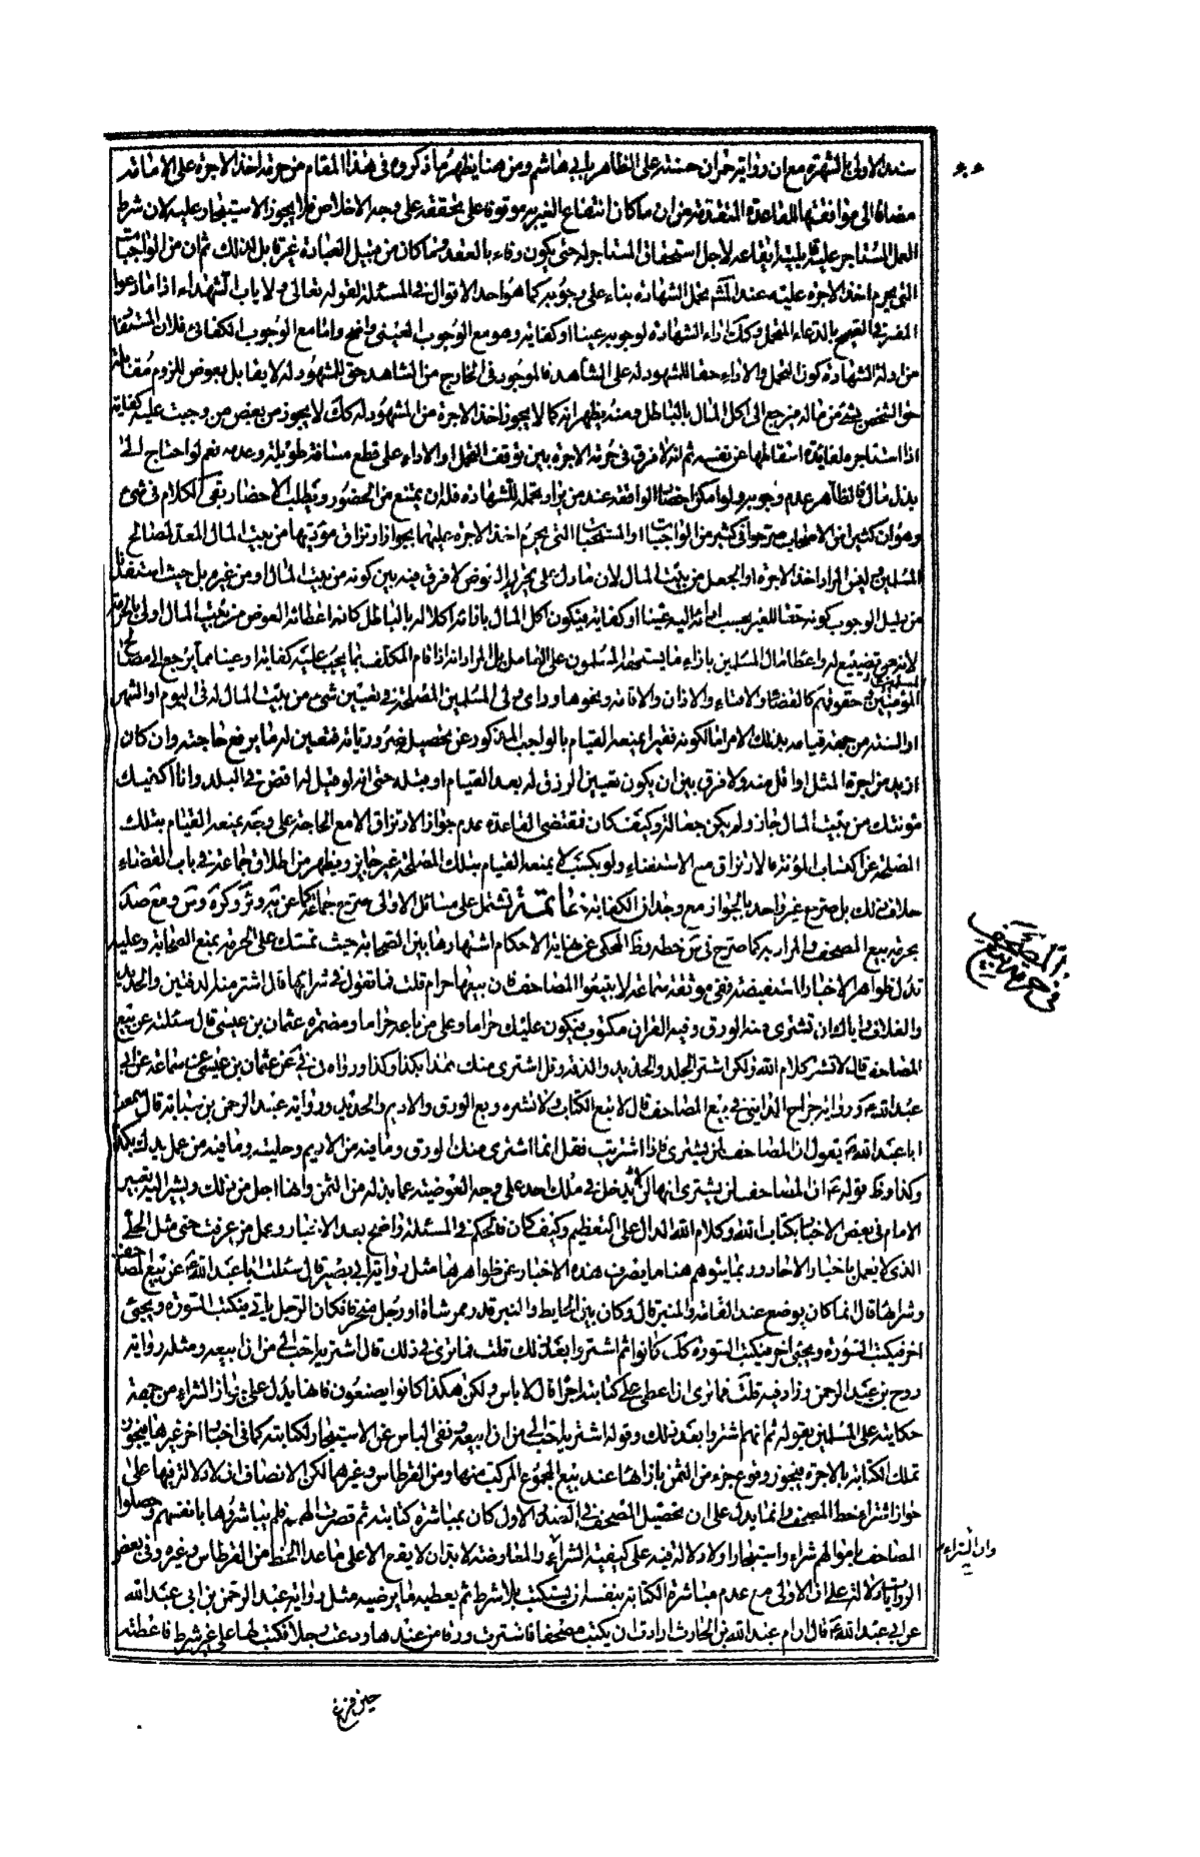 سند الاولى بالشهرة مع ان رواية حمران حسنة على الظاهر بابن هاشم ومن هنا يظهر ما ذكروه في هذا المقام من حرمة اخذ الاجرة على الامامة
مضافا الى موافقتها للقاعدة المتقدمة من ان ما كان انتفاع الغير به موقوفا على تحققه على وجه الاخلاص فلا يجوز الاستيجار عليه لان شرط
العمل المستاجر عليه قابلية ايقاعه لاجل استحقاق المستاجر له حتى يكون وفاء بالعقد وما كان من قبيل العبادة غير قابل لذلك ثم ان من الواجبات
التي يحرم اخذ الاجرة عليه عند المشهور تحمل الشهادة بناء على وجوبه كما هو احد الاقوال في المسئلة لقوله تعالى ولا ياب الشهداء اذا ما دعوا
المفسر في الصحيح بالدعاء للتحمل وكك اداء الشهادة لوجوبه عينا او كفاية وهو مع الوجوب العيني واضح واما مع الوجوب الكفائي فلان المستفاد
من ادلة الشهادة كون التحمل والاداء حقا للمشهود له على الشاهد فالموجود في الخارج من الشاهد حق للمشهود له لا يقابل بعوض للزوم مقابلة
حق الشخص بشيء من ماله فيرجع الى اكل المال بالباطل ومنه يظهر انه كما لا يجوز اخذ الاجرة من المشهود له كك لا يجوز من بعض من وجبت عليه كفاية
اذا استاجره لفائدة اسقاطها عن نفسه ثم انه لا فرق في حرمة الاجرة بين توقف التحمل او الاداء على قطع مسافة طويلة وعدمه نعم لو احتاج الى
بذل مال فالظاهر عدم وجوبه ولو امكن احضار الواقعة عند من يراد تحمله للشهادة فله ان يمتنع من الحضور ويطلب الاحضار بقي الكلام في شيء
وهو ان كثيرا من الاصحاب صرحوا في كثير من الواجبات او المستحبات التي يحرم اخذ الاجرة عليها بجواز ارتزاق مؤديها من بيت المال المعد لمصالح
المسلمين وليس المراد اخذ الاجرة او الجعل من بيت المال لان ما دل على تحريم العوض لا فرق فيه بين كونه من بيت المال او من غيره بل حيث استفدنا
من دليل الوجوب كونه حقا للغير يجب ادائه اليه عينا او كفاية فيكون اكل المال بازائه اكلا له بالباطل كان اعطائه العوض من بيت المال اولى بالحرمة
لانه تضييع له واعطاء مال المسلمين بازاء ما يستحقه المسلمون على العامل بل المراد انه اذا قام المكلف بما يجب عليه كفاية او عينا مما يرجع الى مصالح
المؤمنين وحقوقهم كالقضاء والافتاء والاذان والاقامة ونحوها وراى ولي المسلمين المصلحة في تعيين شيء من بيت المال له في اليوم او الشهر
او السنة من جهة قيامه بذلك الامر اما لكونه فقيرا يمنعه القيام بالواجب المذكور عن تحصيل ضرورياته فيتعين له ما يرفع حاجته وان كان
ازيد من اجرة المثل او اقل منه ولا فرق بين ان يكون تعيين الرزق له بعد القيام او قبله حتى انه لو قيل له اقض في البلد وانا اكفيك
مؤنتك من بيت المال جاز ولم يكن جعالة وكيف كان فمقتضى القاعدة عدم جواز الارتزاق الا مع الحاجة على وجه يمنعه القيام بتلك
المصلحة عن اكتساب المؤنة فالارتزاق مع الاستغناء ولو بكسب لا يمنعه القيام بتلك المصلحة غير جايز ويظهر من اطلاق جماعة في باب القضاء
خلاف ذلك بل صرح غير واحد بالجواز مع وجدان الكفاية خاتمة تشتمل على مسائل الاولى صرح جماعة كما عن ية وئر وكرة وس ومع صد
بحرمة بيع المصحف والمراد به كما صرح في س خطه وظ المحكي عن نهاية الاحكام اشتهارها بين الصحابة حيث تمسك على الحرمة بمنع الصحابة وعليه
تدل ظواهر الاخبار المستفيضة ففي موثقة سماعة لا تبيعوا المصاحف فان بيعها حرام قلت فما تقول في شرائها قال اشتر منه الدفتين والحديد
والغلاف واياك ان تشتري منه الورق وفيه القران مكتوب فيكون عليك حراما وعلى من باعه حراما ومضمرة عثمان بن عيسى قال سئلته عن بيع
المصاحف قال لا تشتر كلام الله ولكن اشتر الجلد والحديد والدفة وقل اشتري منك هذا بكذا وكذا ورواه في في عن عثمان بن عيسى عن سماعة عن ابي
عبد الله ع ورواية جراح المدايني في بيع المصاحف قال لا تبع الكتاب ولا تشتره وبع الورق والاديم والحديد ورواية عبد الرحمن بن سيابة قال سمعت
ابا عبد الله ع يقول ان المصاحف لن يشترى فاذا اشتريت فقل انما اشتري منك الورق وما فيه من الاديم وحليته وما فيه من عمل يدك بكذا
وكذا وظ قوله ع ان المصاحف لن يشترى انها لا يدخل في ملك احد على وجه العوضية عما بذله من الثمن وانها اجل من ذلك ويشير اليه تعبير
الامام في بعض الاخبار بكتاب الله وكلام الله الدال على التعظيم وكيف كان فالحكم في المسئلة واضح بعد الاخبار وعمل من عرفت حتى مثل الحلي
الذي لا يعمل باخبار الاحاد وربما يتوهم هنا ما يصرف هذه الاخبار عن ظواهرها مثل رواية ابي بصير قال سئلت ابا عبد الله ع عن بيع المصاحف
وشرائها قال انما كان يوضع عند القامة والمنبر قال وكان بين الحايط والمنبر قدر ممر شاة او رجل منحرفا فكان الرجل ياتي فيكتب السورة ويجيئ
اخر فيكتب السورة ويجيئ اخر فيكتب السورة كك كانوا ثم اشتروا بعد ذلك قلت فما ترى في ذلك قال اشتريه احب الي من ان ابيعه ومثله رواية
روح بن عبد الرحمن وزاد فيه قلت فما ترى ان اعطي على كتابته اجرا قال لا باس ولكن هكذا كانوا يصنعون فانها يدل على جواز الشراء من جهة
حكايته عن المسلمين بقوله ثم انهم اشتروا بعد ذلك وقوله اشتريه احب الي من ان ابيعه ونفي الباس عن الاستيجار لكتابته كما في اخبار اخر غيرها فيجوز
تملك الكتابة بالاجرة فيجوز وقوع جزء من الثمن بازائها عند بيع المجموع المركب منها ومن القرطاس وغيرهما لكن الانصاف ان لا دلالة فيها على
جواز اشتراء خط المصحف وانما يدل على ان تحصيل المصحف في الصدر الاول كان بمباشرة كتابته ثم قصرت الهمم فلم يباشروها بانفسهم وحصلوا
المصاحف باموالهم شراء واستيجارا ولا دلالة فيه على كيفية الشراء وان الشراء والمعاوضة لا بد ان لا يقع الا على ما عدا الخط من القرطاس وغيره وفي بعض
الروايات دلالة على ان الاولى مع عدم مباشرة الكتابة بنفسه ان يستكتب بلا شرط ثم يعطيه ما يرضيه مثل رواية عبد الرحمن بن ابي عبد الله
عن ابي عبد الله ع قال ان ام عبد الله بن الحارث ارادت ان يكتب مصحفا فاشترت ورقا من عندها ودعت رجلا فكتب لها على غير شرط فاعطته
في حرمة بيع المصحف
وان الشراء
حين فرغ